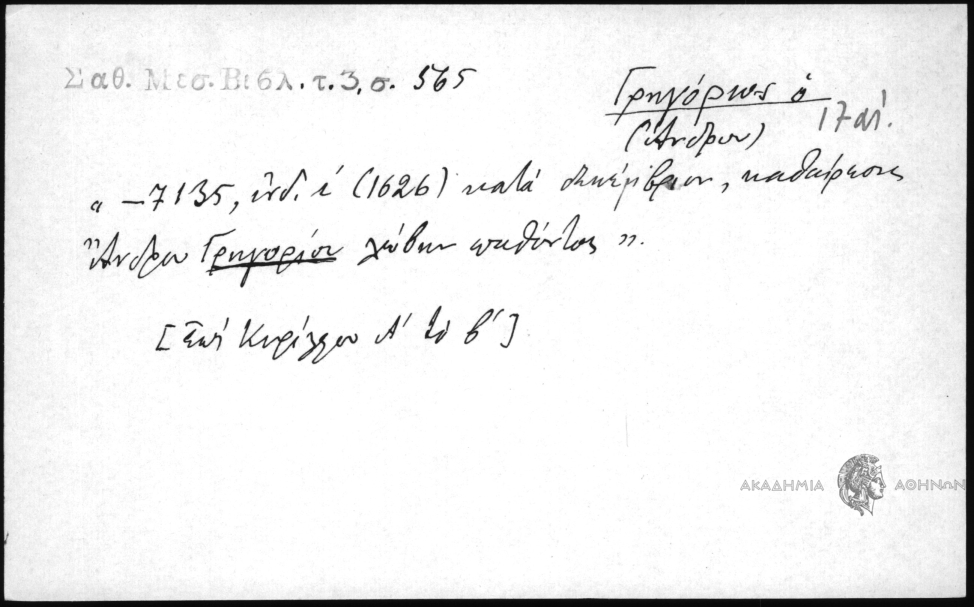 Σαθ. Μεσ. Βιβλ. τ. 3, σ. 565
Γρηγόριος ὁ
(Ἄνδρου)
17 αἰ.
" —7135, ἰνδ. ι΄ (1626) κατὰ Δεκέμβριον, καθαίρεσις
Ἄνδρου Γρηγορίου λώβην παθόντος ".
[Ἐπὶ Κυρίλλου Α΄ τὸ β΄]
ΑΚΑΔΗΜΙΑ ΑΘΗΝΩΝ